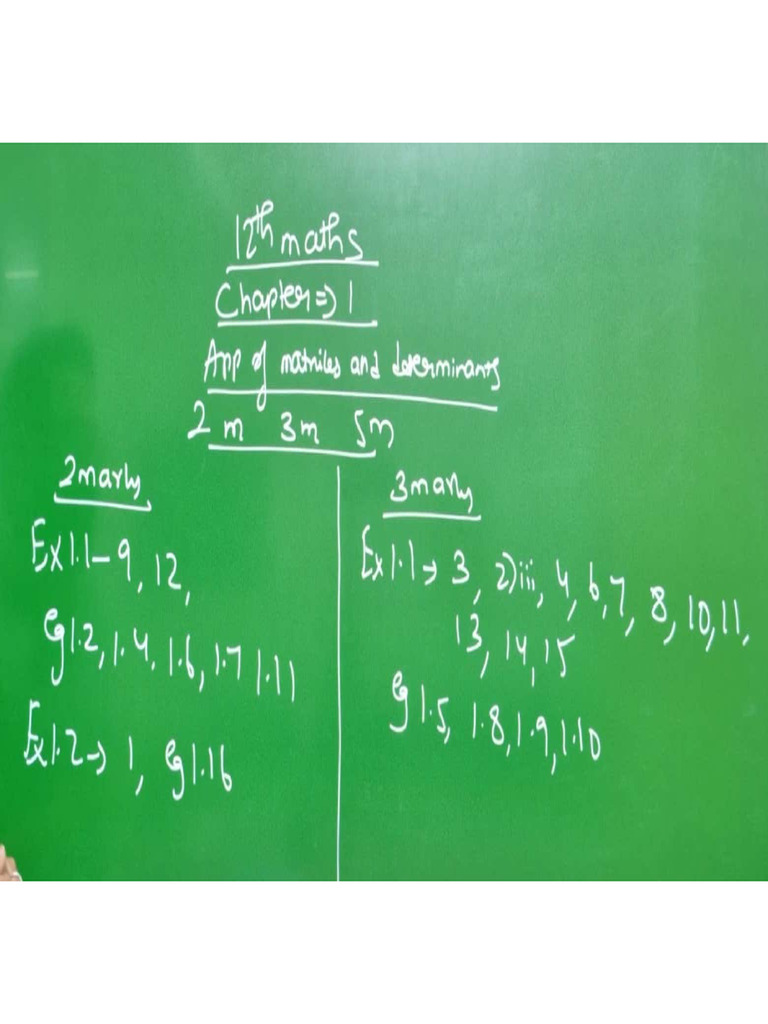 12th maths
Chapter => 1
App of matrices and determinants
2m 3m 5m
2 marks
Ex 1.1 - 9, 12,
Eg 1.2, 1.4, 1.6, 1.7 1.11
Ex 1.2 → 1, Eg 1.16
3 marks
Ex 1.1 → 3, 2) iii, 4, 6, 7, 8, 10, 11,
13, 14, 15
Eg 1.5, 1.8, 1.9, 1.10